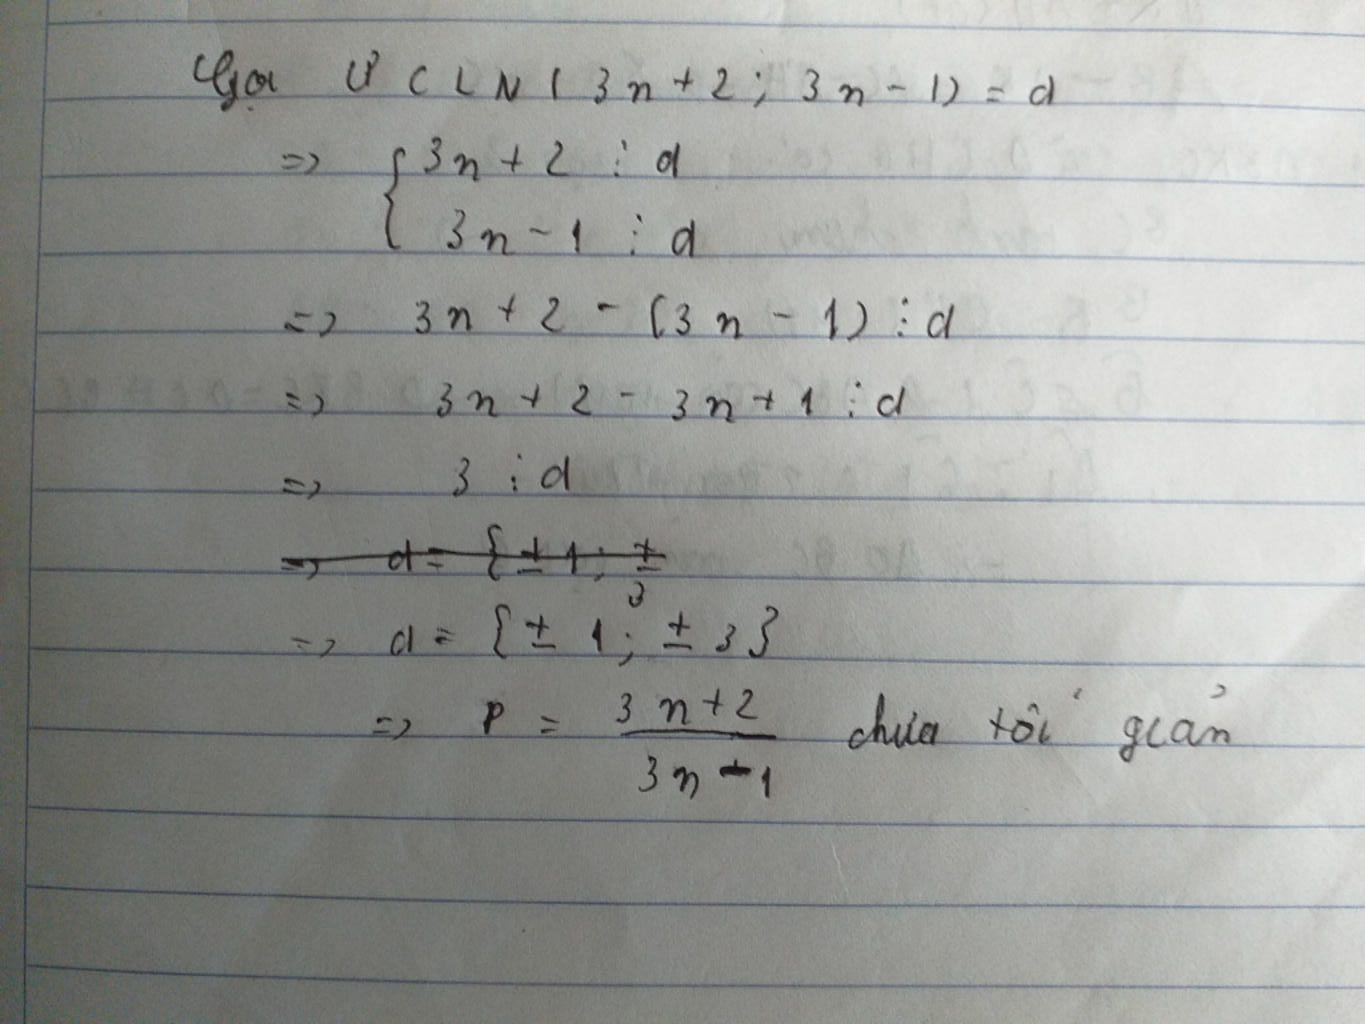 Gọi ƯCLN(3n+2; 3n-1) = d
=> { 3n+2 ⋮ d
3n-1 ⋮ d
=> 3n+2-(3n-1) ⋮ d
=> 3n+2-3n+1 ⋮ d
=> 3 ⋮ d
=> d = {±1; ±3
=> d = {±1; ±3}
=> P = \frac{3n+2}{3n-1} chưa tối giản